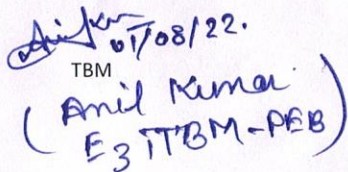 01/08/22.
TBM
(Anil Kumar
E3 TTBM-PEB)